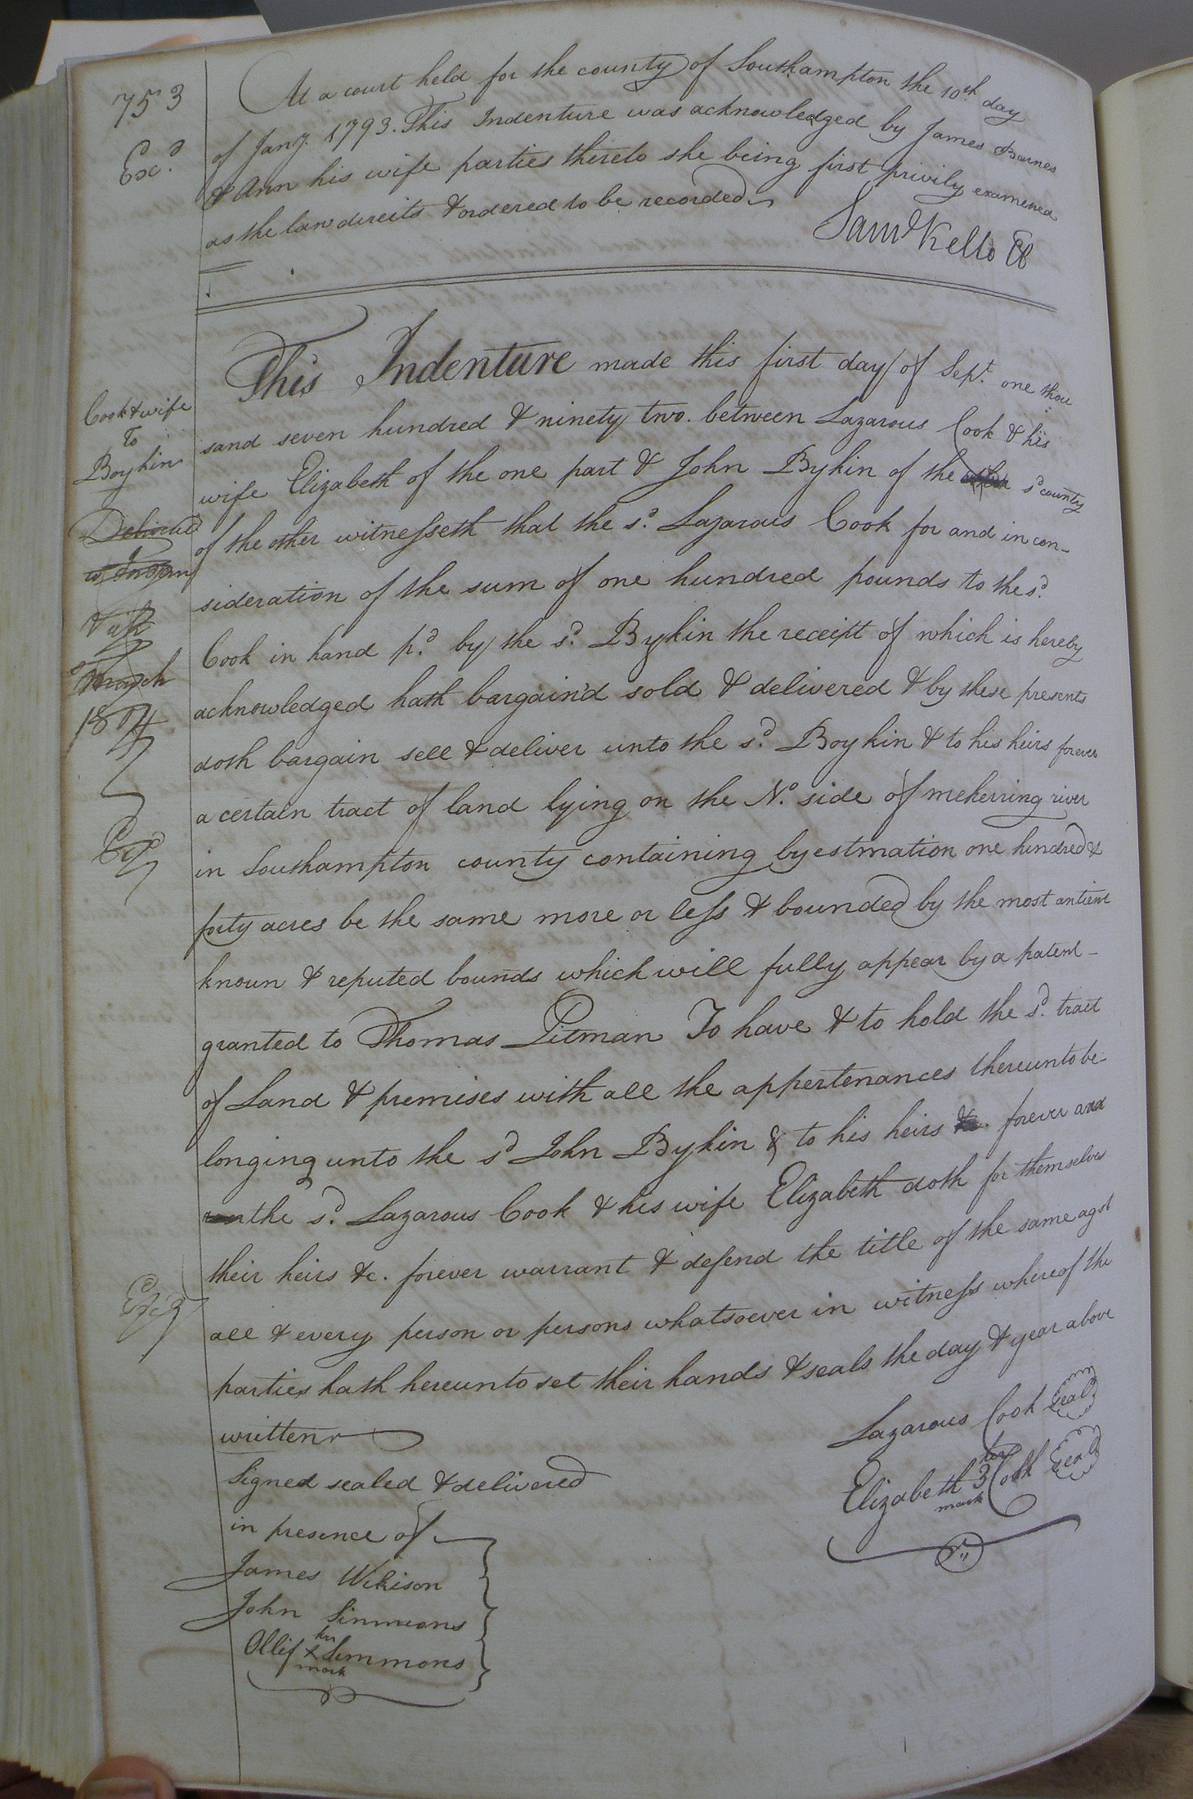 753
Exd.
At a court held for the county of Southampton the 10th day
of Jany. 1793. This Indenture was acknowledged by James Barnes
& Ann his wife parties thereto she being first privily examined
as the law directs & ordered to be recorded
Saml Kello CC
Cook & wife
To
Boykin
This Indenture made this first day of Sept. one thou
sand seven hundred & ninety two. between Lazarous Cook & his
wife Elizabeth of the one part & John Bykin of the sd county
of the other witnesseth that the sd. Lazarous Cook for and in con-
sideration of the sum of one hundred pounds to the sd.
Cook in hand pd. by the sd. Bykin the receipt of which is hereby
acknowledged hath bargain'd sold & delivered & by these presents
doth bargain sell & deliver unto the sd. Boykin & to his heirs forever
a certain tract of land lying on the No. side of meherring river
in Southampton county containing by estmation one hundred &
forty acres be the same more or less & bounded by the most antient
known & reputed bounds which will fully appear by a patent-
granted to Thomas Pitman To have & to hold the sd. tract
of Land & premises with all the appertenances thereunto be-
longing unto the sd John Bykin & to his heirs forever and
the sd. Lazarous Cook & his wife Elizabeth doth for themselves
their heirs &c. forever warrant & defend the title of the same agst
all & every person or persons whatsoever in witness whereof the
parties hath hereunto set their hands & seals the day & year above
written
Delivered
March
1804
Exd
Exd
Lazarous Cook Seal
Elizabeth her 3 mark Cook Seal
Signed sealed & delivered
in presence of
James Wikison
John Simmons
Ollif her x mark Simmons